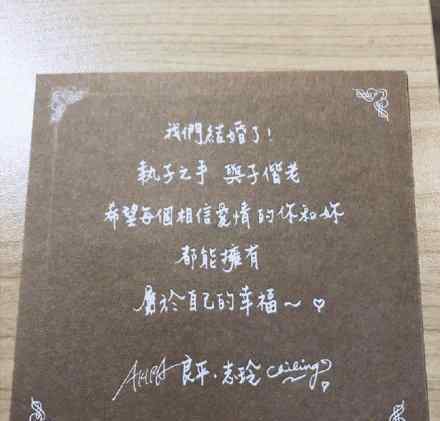 我們結婚了!
執子之手 與子偕老
希望每個相信愛情的你和妳
都能擁有
屬於自己的幸福~ ♡
AKIRA 良平·志玲 Chiling